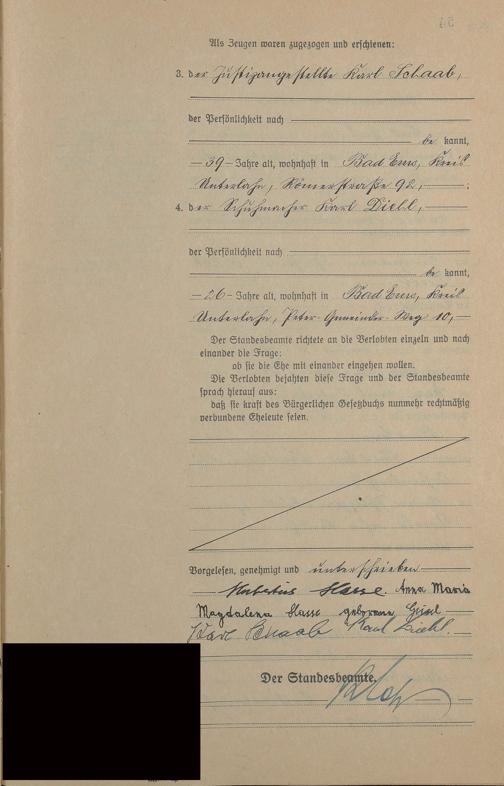 Als Zeugen waren zugezogen und erschienen:
3. der Justizangestellte Karl Schaab,
der Persönlichkeit nach
be kannt,
39 Jahre alt, wohnhaft in Bad Ems, Kreis
Unterlahn, Römerstraße 92,
4. der Schuhmacher Karl Diehl,
der Persönlichkeit nach
be kannt,
26 Jahre alt, wohnhaft in Bad Ems, Kreis
Unterlahn, Peter-Gmeinder-Weg 10,
Der Standesbeamte richtete an die Verlobten einzeln und nach
einander die Frage:
ob sie die Ehe mit einander eingehen wollen.
Die Verlobten bejahten diese Frage und der Standesbeamte
sprach hierauf aus:
daß sie kraft des Bürgerlichen Gesetzbuchs nunmehr rechtmäßig
verbundene Eheleute seien.
Vorgelesen, genehmigt und unterschrieben
Hubertus Hasse. Anna Maria
Magdalena Hasse geborene
Karl Schaab Karl Diehl.
Der Standesbeamte.